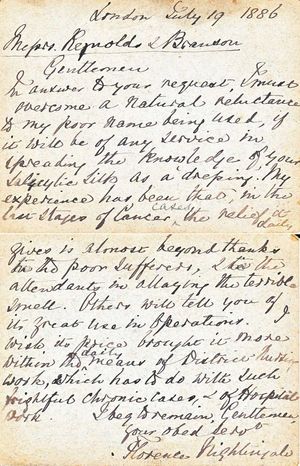 London July 19 1886
Messrs. Reynolds & Branson
Gentlemen
In answer to your request, I must
overcome a natural reluctance
to my poor name being used, if
it will be of any service in
spreading the knowledge of your
Salycylic Silk as a dressing. My
experience has been that, in the
last stages of Cancer cases, the relief it daily
gives is almost beyond thanks
to the poor Sufferers, & to the
attendants in allaying the terrible
smell. Others will tell you of
its great use in Operations. I
wish its price brought it more
within the daily means of District Nursing
work, which has to do with such
frightful Chronic cases, & of Hospital
work I beg to remain, Gentlemen
your obed servt
Florence Nightingale